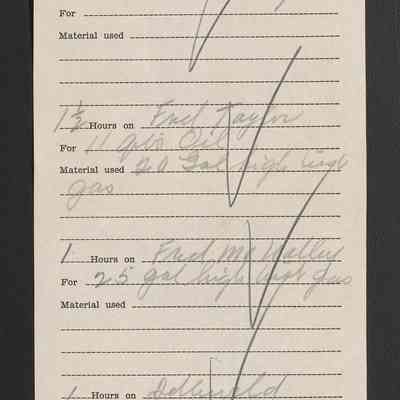 For
Material used
1½ Hours on Fred Taylor
For 11 gts Oil
Material used 20 Gal high test
gas
1 Hours on Fred Mc Nalley
For 25 gal high test gas
Material used
1 Hours on